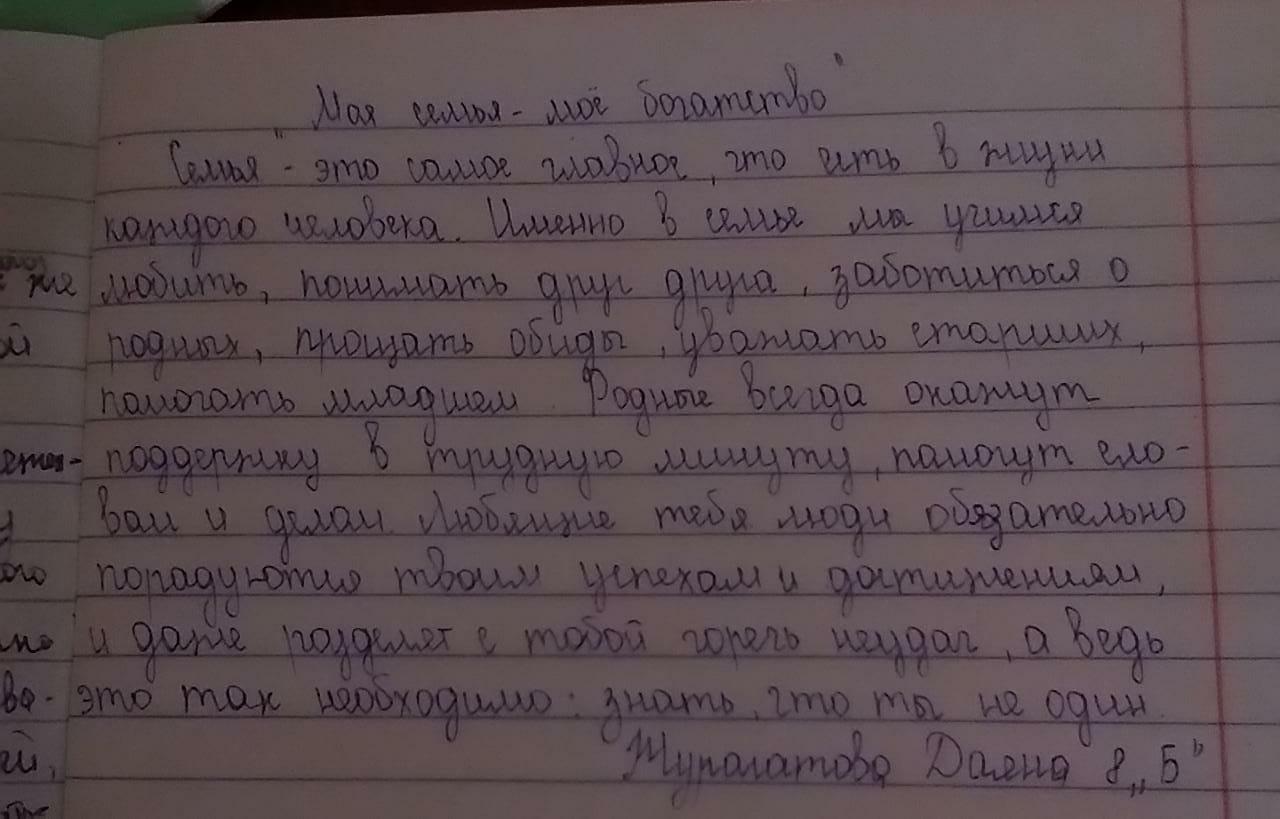 "Моя семья - моё богатство"
Семья - это самое главное, что есть в жизни
каждого человека. Именно в семье мы учимся
же любить, понимать друг друга, заботиться о
ой родных, прощать обиды, уважать старших,
помогать младшем. Родные всегда окажут
поддержку в трудную минуту, помогут сло-
вом и делом. Любящие тебя люди обязательно
ого порадуются твоим успехам и достижениям,
и даже разделят с тобой горечь неудач, а ведь
это так необходимо: знать, что ты не один.
Жуполатова Даяна 8 „Б"